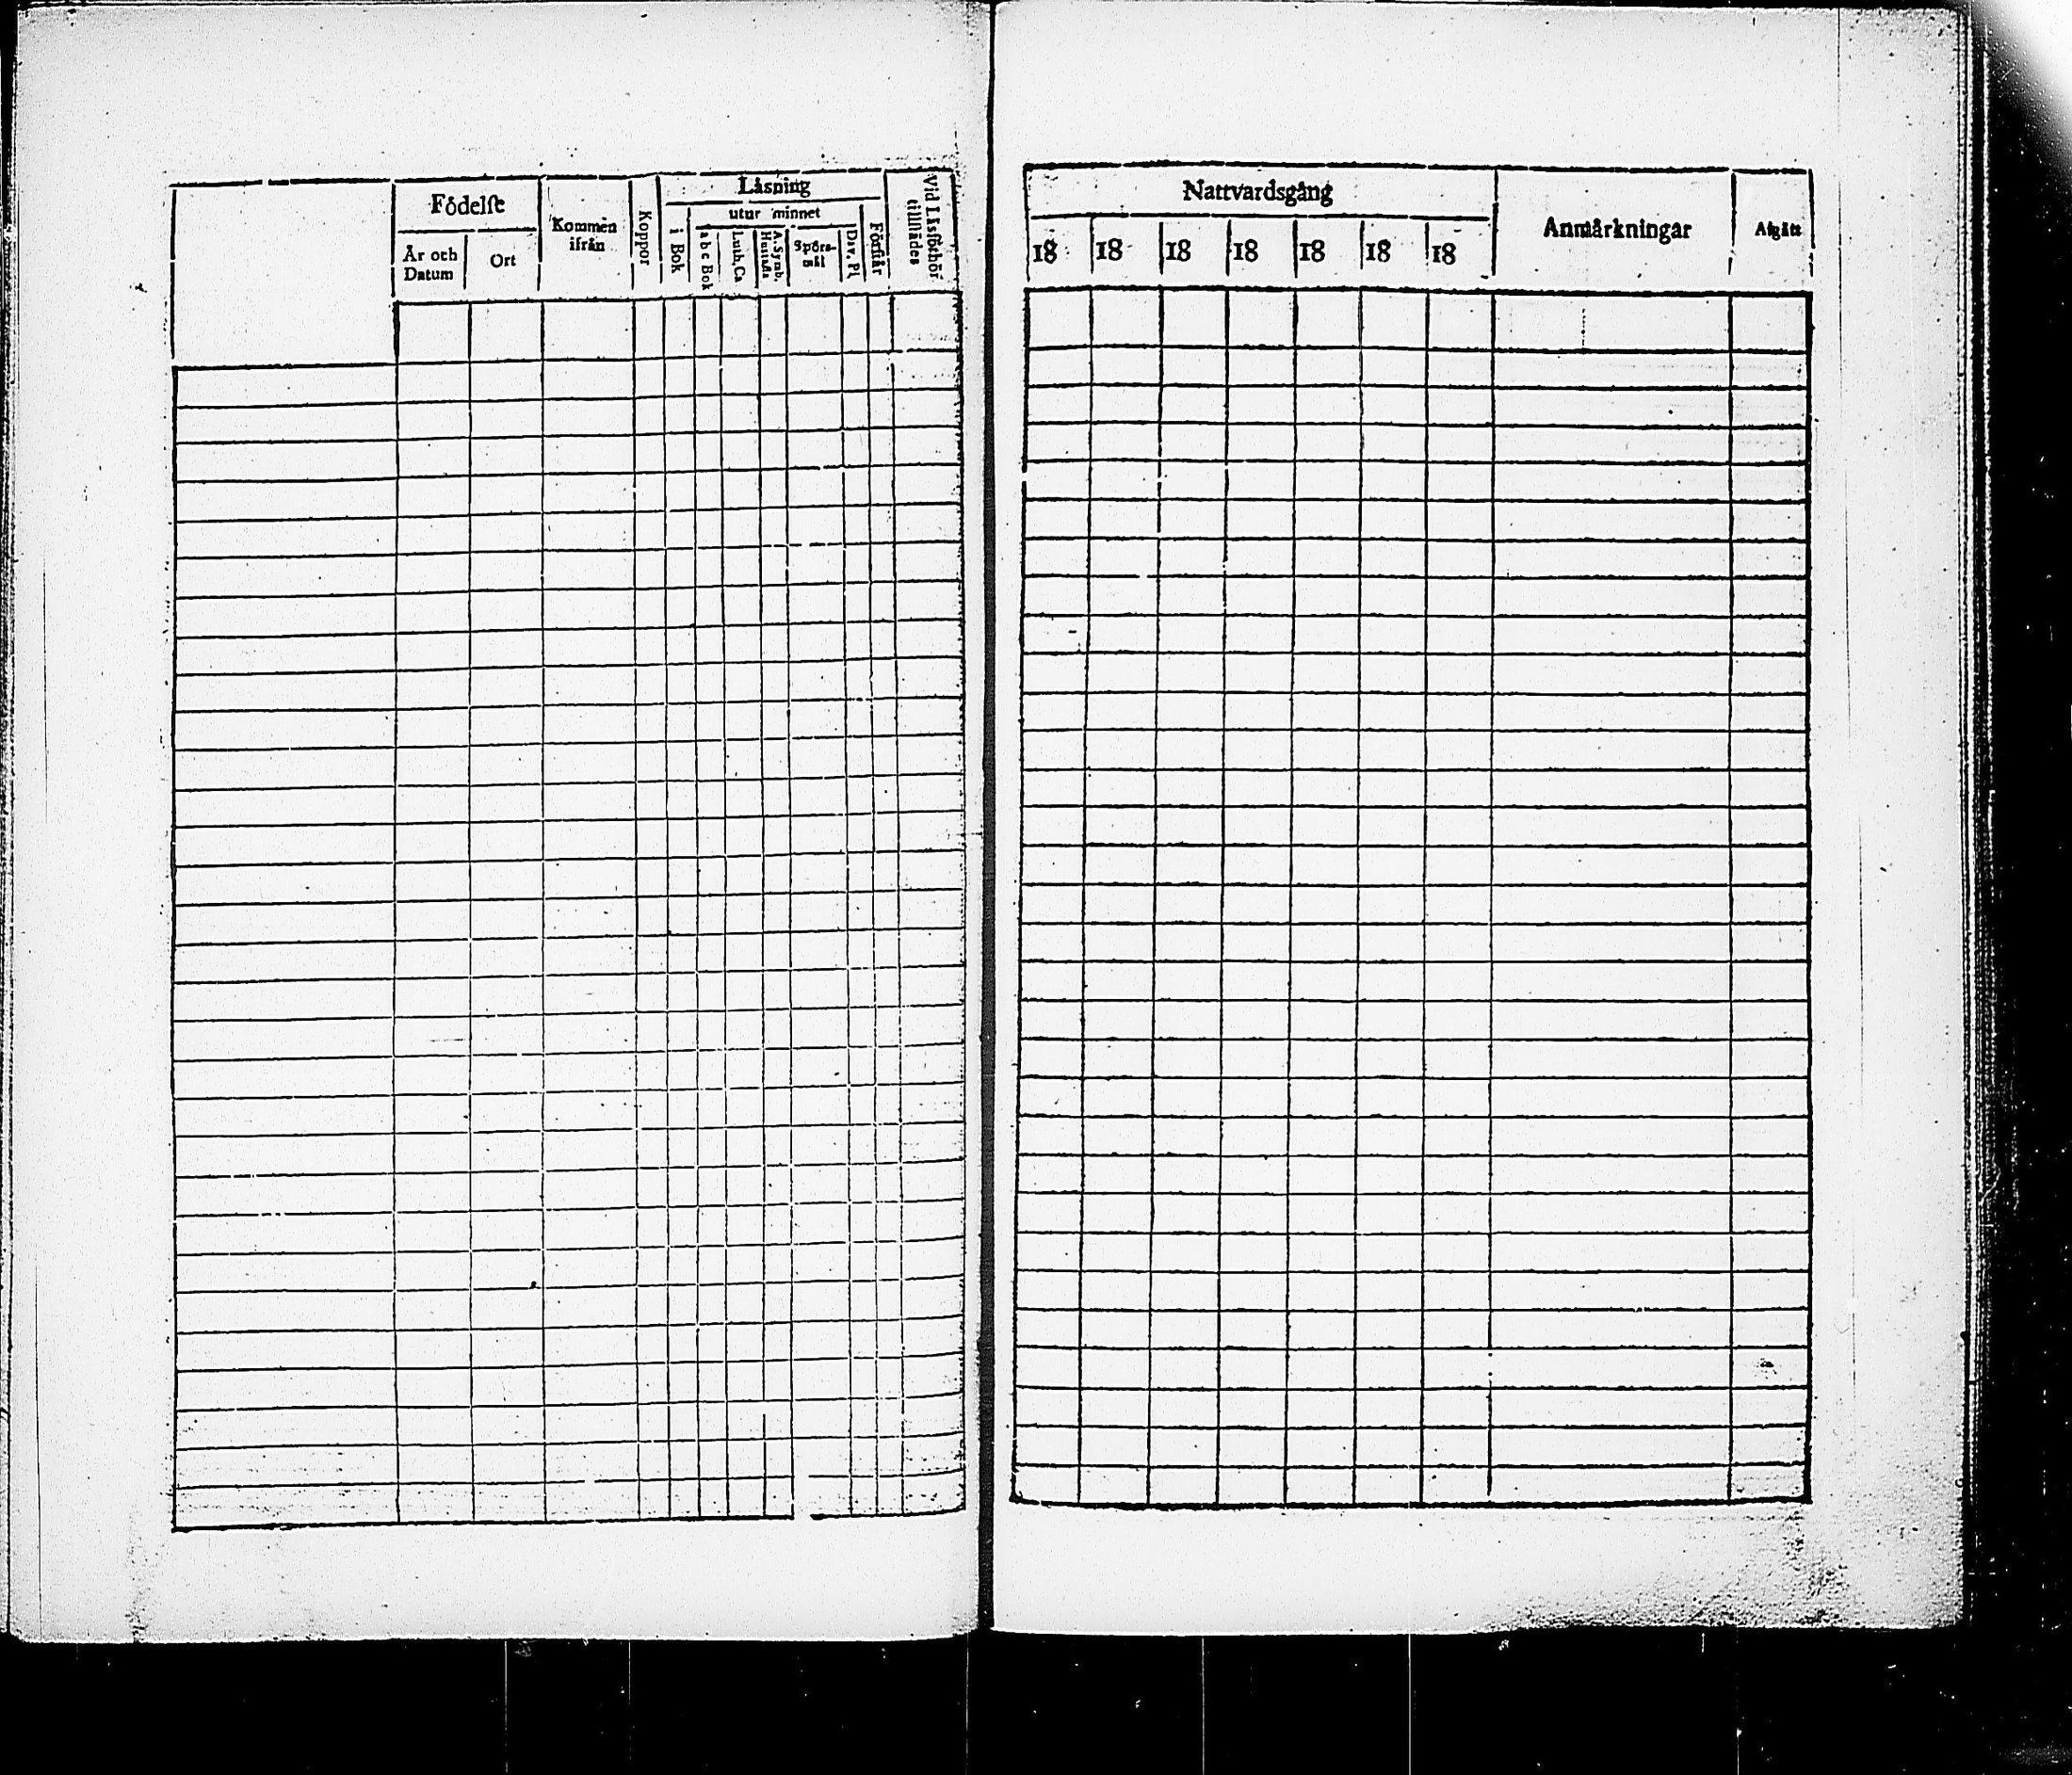 Födelſe
År och Datum
Ort
Kommen ifrån
Koppor
Läsning
i Bok
utur minnet
a b c Bok
Luth. Ca
A. Symb. Hustafla
Spörs-mål
Dav. Pſ
Förſtår
Vid Läsförhör tillſtädes
Nattvardsgång
18 18 18 18 18 18 18
Anmärkningar
Afgått